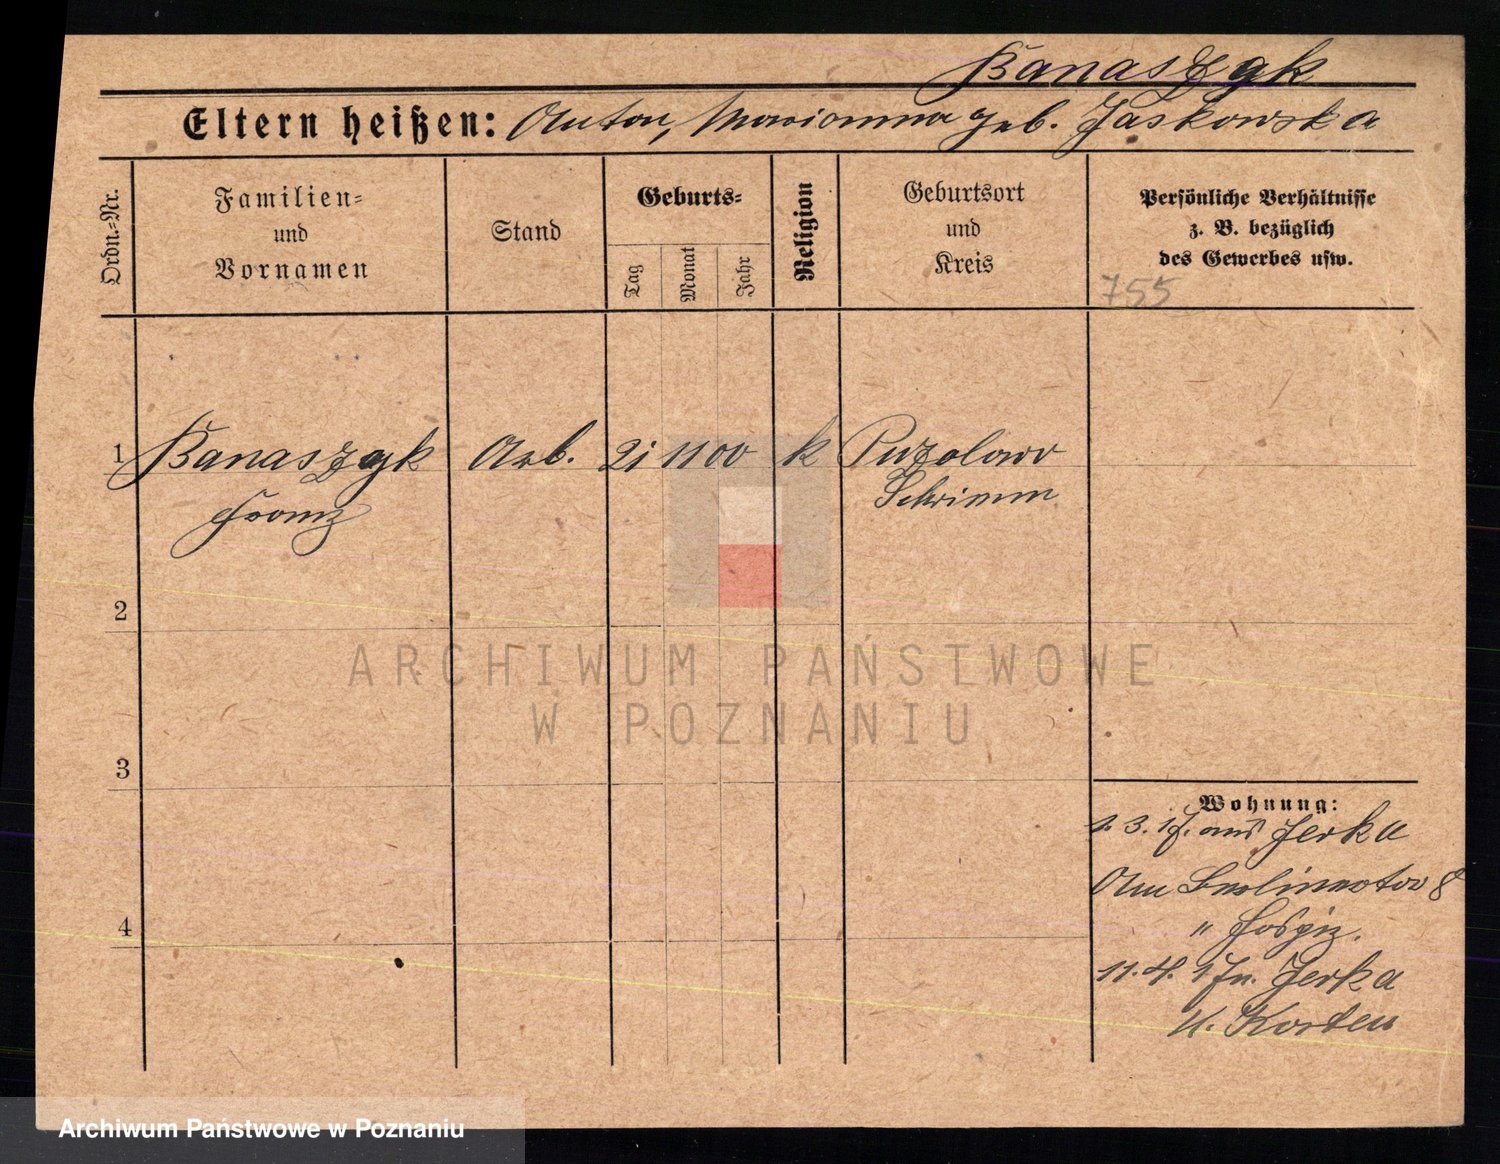 Banaszyk
Eltern heißen: Anton, Marianna geb. Jaskowska
Ordn.-Nr.
Familien-
und
Vornamen
Stand
Geburts-
Tag
Monat
Jahr
Religion
Geburtsort
und
Kreis
Persönliche Verhältnisse
z. B. bezüglich
des Gewerbes usw.
755
1 Banaszyk Arb. 21 11 00 k
Franz Schrimm
2
ARCHIWUM PAŃSTWOWE
W POZNANIU
3
Wohnung:
1. 3. 17. aus Jerka
Am Berlinertor 8
" Hospiz.
4
11. 4. 17 n. Jerka
K. Kosten
Archiwum Państwowe w Poznaniu